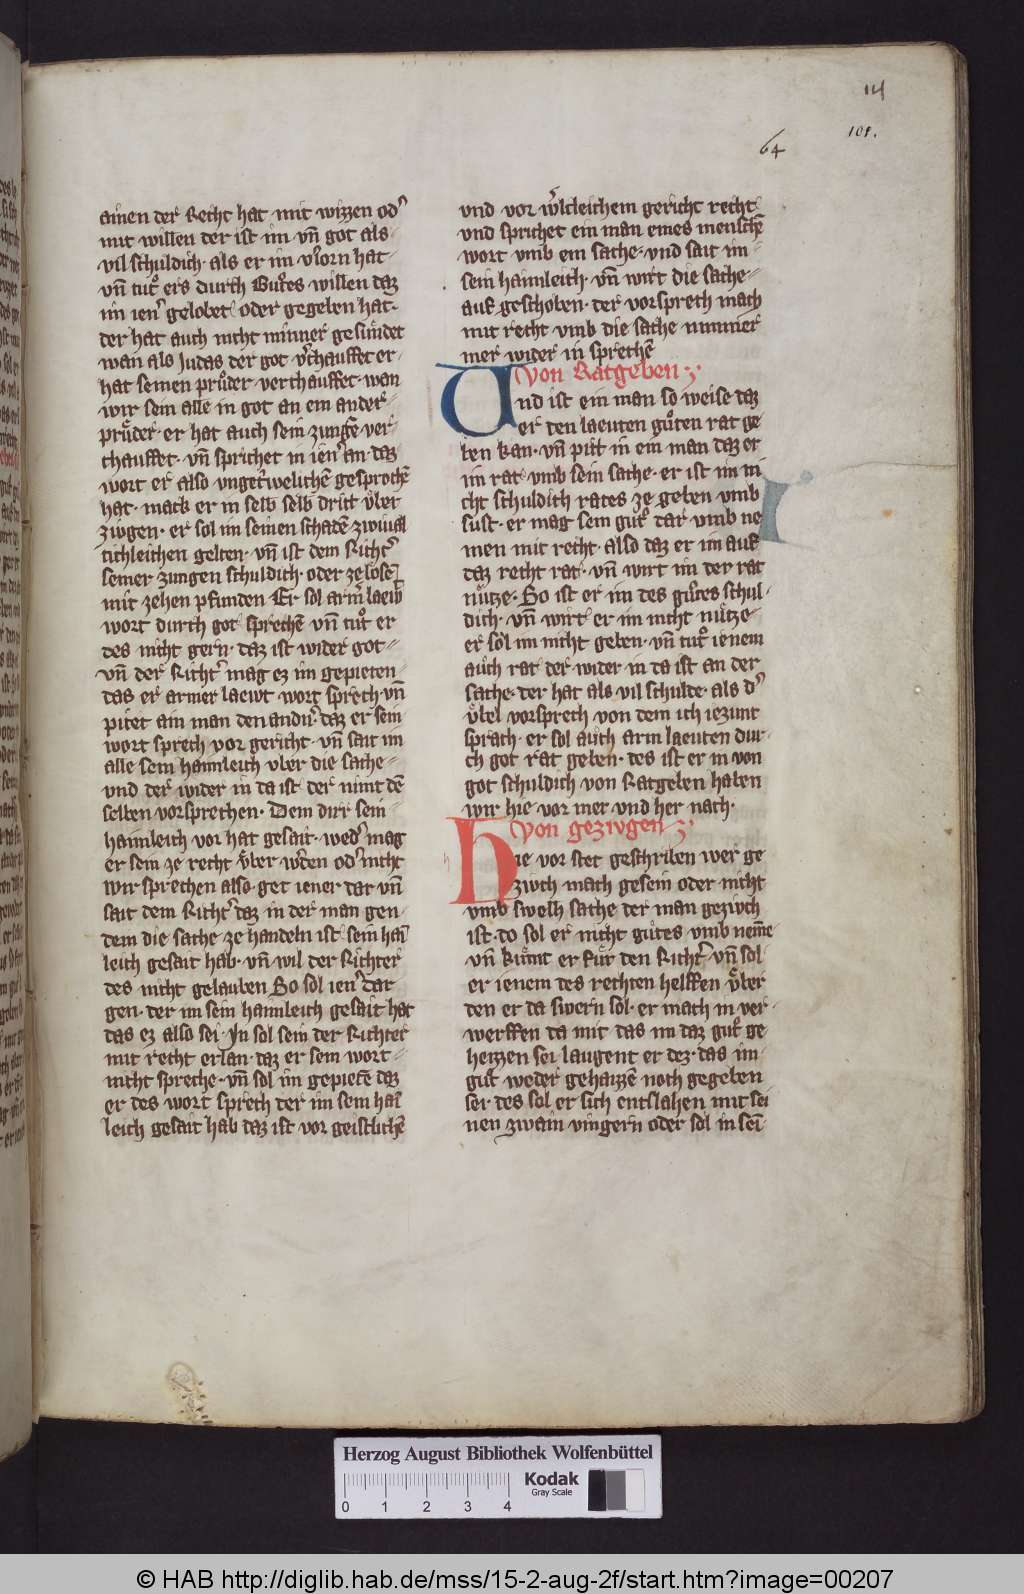 114
101.
64
ainen der Recht hat mit wizzen od͛
mit willen der ist im vn̄ got als
vil schuldich· als er im v͛lorn hat·
vn̄ tuͦt ers durch Guͦtes willen daz
im ien͛ gelobet oder gegeben hat·
der hat auch nicht minner gesuͤndet
wan als Judas der got v͛chauffet er
hat seinen pruͦder verchauffet· wan
wir sein alle in got an ein ander
pruͤder· er hat auch sein zunge ver
chauffet· vn̄ sprichet in ien͛ an· daz
wort er also vngetrwelichē gesprochē
hat· mack er in selb selb dritt vͤber
zivgen· er sol im seinen schadē zwiual
tichleichen gelten· vn̄ ist dem Richt͛
seiner zungen schuldich· oder ze lösē
mit zehen pfunden Er sol arm͛ laewt
wort durch got sprechē vn̄ tuͦt er
des nicht gern· daz ist wider got
vn̄ der Richt͛ mag ez im gepieten
das er armer laewt wort sprech vn̄
pitet ain man den and͛n· daz er sein
wort sprech vor gericht· vn̄ sait im
alle sein haimleich vber die sache
vnd der wider in da ist der nimt dē
selben vorsprechen· Dem dirr sein
haimleich vor hat gesait· wed͛ mag
er sein ze recht vͤber w͛den od͛ nicht
wir sprechen also· get iener dar vn̄
sait dem Richt͛ daz in der man gen
dem die sache ze handeln ist sein hai
leich gesait hab· vn̄ wil der Richter
des nicht gelauben So sol ien͛ dar
gen· der im sein haimleich gesait hat
das ez also sei· In sol sein der Richter
mit recht erlan· daz er sein wort
nicht spreche· vn̄ sol im gepietē daz
er des wort sprech der im sein hai
leich gesait hab daz ist vor geistlichē
vnd vor w͛ltleichem gericht recht
vnd sprichet ein man eines menschē
wort vmb ein sache· vnd sait im
sein haimleich· vn̄ wirt die sache
auf geschoben· der vorsprech mach
mit recht vmb die sache nimmer
mer wider in sprechē
von Ratgeben
Vnd ist ein man so weise daz
er den laeuten guͦten rat ge
ben kan· vn̄ pitt in ein man daz er
im rat vmb sein sache· er ist im ni
cht schuldich rates ze geben vmb
sust· er mag sein guͦt dar vmb ne
men mit recht· also daz er im auf
daz recht rat· vn̄ wirt im der rat
nuͤtze· So ist er im des guͦtes schul
dich· vn̄ wirt er im nicht nuͤtze
er sol im nicht geben· vn̄ tuͦt ienem
auch rat der wider in da ist an der
sache· der hat als vil schulde· als d͛
vͤbel vorsprech von dem ich iezunt
sprach· er sol auch arm laeuten dur
ch got rat geben· des ist er in von
got schuldich von Ratgeben haben
wir hie vor mer vnd her nach·
von gezivgen
Hie vor stet geschriben wer ge
zivch mach gesein oder nicht
vmb swelh sache der man gezivch
ist· do sol er nicht guͦtes vmb nemē
vn̄ kuͤmt er fuͤr den Richt͛ vn̄ sol
er ienem des rechten helffen vͤber
den er da swern sol· er mach in ver
werffen da mit das im daz guͦt ge
heizzen sei laugent er dez· das im
guͦt weder gehaizzē noch gegeben
sei· des sol er sich entslahen mit sei
nen zwain vingern oder sol in sei
Herzog August Bibliothek Wolfenbüttel
0 1 2 3 4
Kodak
Gray Scale
© HAB http://diglib.hab.de/mss/15-2-aug-2f/start.htm?image=00207